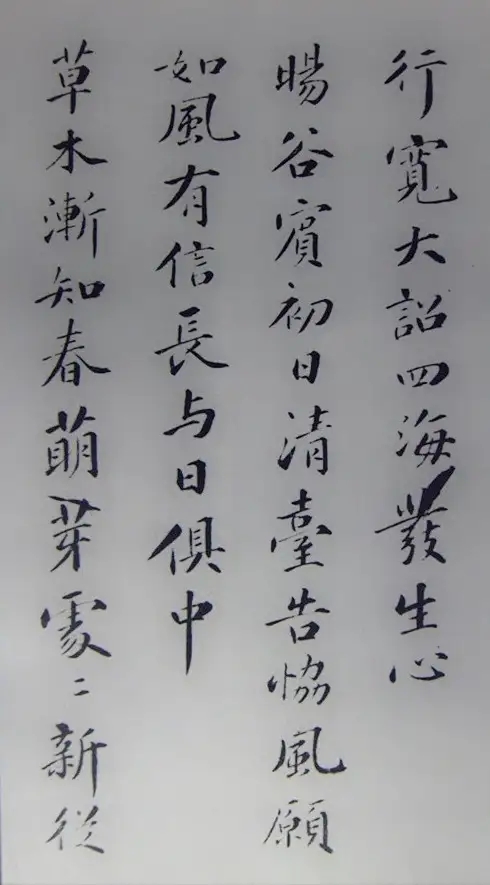 行寬大詔四海發生心
暘谷賓初日清臺告協風願
如風有信長与日俱中
草木漸知春萌芽處〻新從